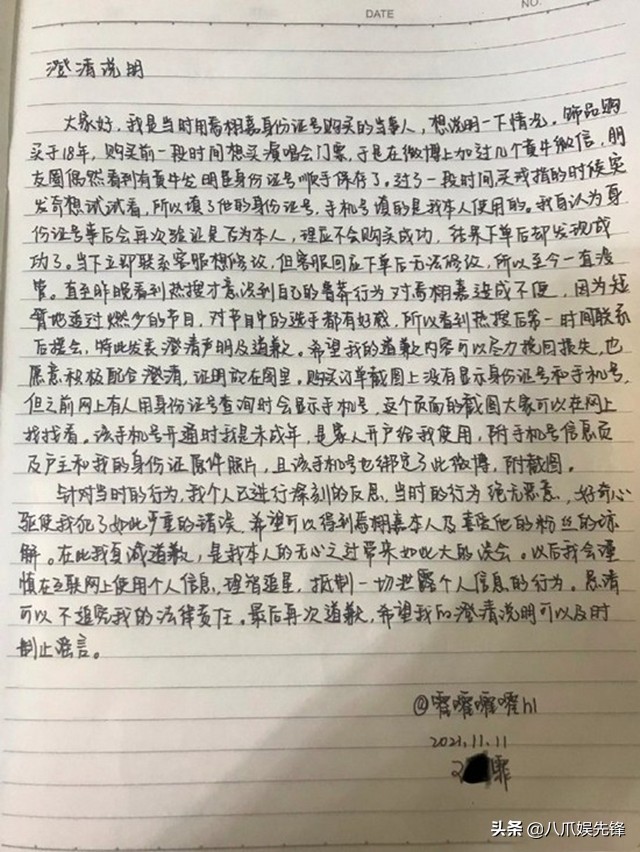 DATE
NO.
澄清说明
大家好，我是当时用焉栩嘉身份证号购买的当事人，想说明一下情况。饰品购
买于18年，购买前一段时间想买演唱会门票，于是在微博上加过几个黄牛微信，朋
友圈偶然看到有黄牛发明星身份证号顺手保存了。过了一段时间买戒指的时候突
发奇想试试看，所以填了他的身份证号，手机号填的是我本人使用的。我自认为身
份证号事后会再次验证是否为本人，理应不会购买成功，结果下单后却发现成
功了。当下立即联系客服想修改，但客服回应下单后无法修改，所以至今一直没
管。直至昨晚看到热搜才意识到自己的鲁莽行为对焉栩嘉造成不便，因为短
暂地追过燃少的节目，对节目中的选手都有好感，所以看到热搜后第一时间联系
后援会，特此发表澄清声明及道歉。希望我的道歉内容可以尽力挽回损失，也
愿意积极配合澄清，证明放在图里。购买订单截图上没有显示身份证号和手机号，
但之前网上有人用身份证号查询时会显示手机号，这个页面的截图大家可以在网上
找找看。该手机号开通时我是未成年，是家人开户给我使用，附手机号信息页
及户主和我的身份证原件照片，且该手机号也绑定了此微博，附截图。
针对当时的行为，我个人已进行深刻的反思，当时的行为绝无恶意，好奇心
驱使我犯了如此严重的错误，希望可以得到焉栩嘉本人及喜爱他的粉丝的谅
解。在此我真诚道歉，是我本人的无心之过带来如此大的误会。以后我会谨
慎在互联网上使用个人信息，理智追星，抵制一切泄露个人信息的行为。恳请
可以不追究我的法律责任。最后再次道歉，希望我的澄清说明可以及时
制止谣言。
@嚯嚯嚯嚯hl
2021.11.11
头条 @八爪娱先锋